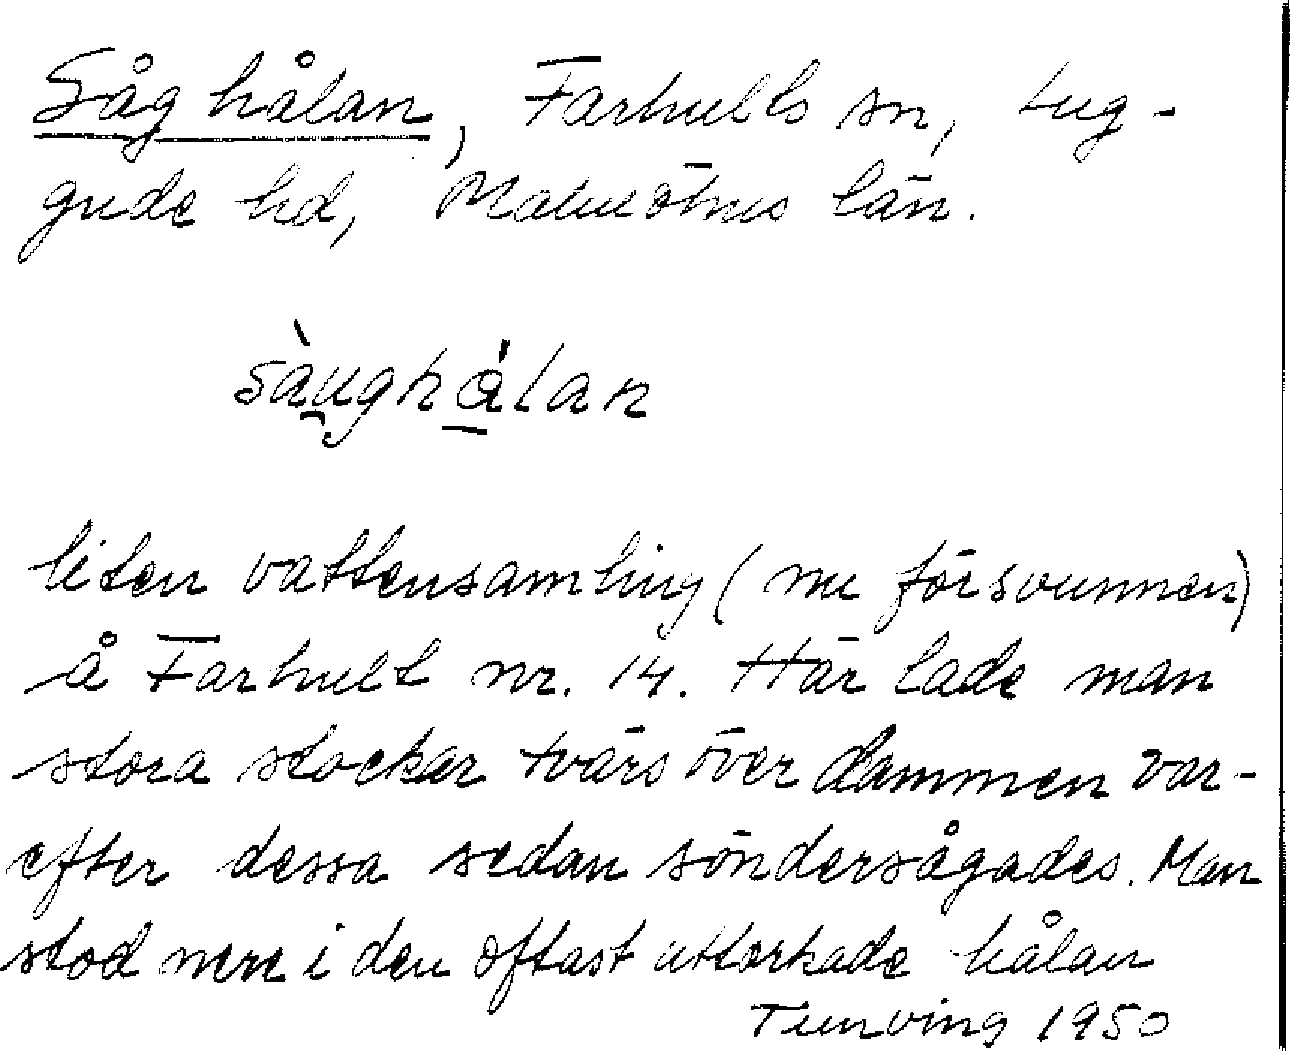 Såghålan, Farhults sn, Lug-
gude hd, Malmöhus län.
sàu̯ghǻ̱lan
liten vattensamling (nu försvunnen)
å Farhult nr. 14. Här lade man
stora stockar tvärs över dammen var-
efter dessa sedan söndersågades. Man
stod nere i den oftast uttorkade hålan
Tunving 1950